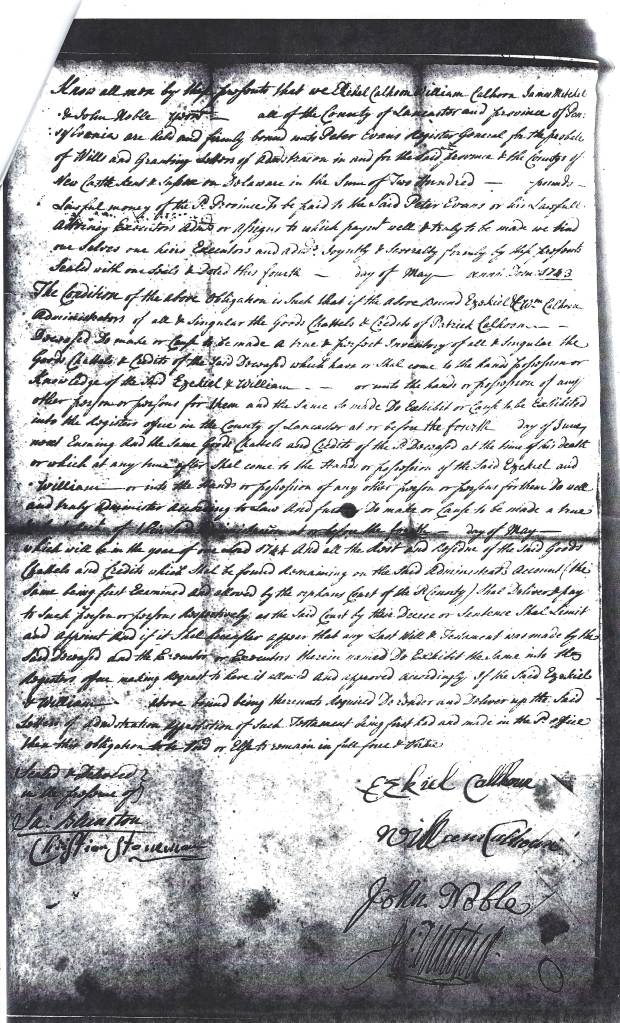 Know all men by these presents that we Ezekiel Calhoun William Calhoun James Mitchel
& John Noble all of the County of Lancaster and province of Pen:
sylvania are held and firmly bound unto Peter Evans Register General for the probate
of Wills and Granting Letters of Admstration in and for the said Province & the Countys of
New Castle Kent & Sussex on Delaware in the Sum of Two Hundred — pounds —
Lawful money of the sd. Province To be paid to the Said Peter Evans or his Lawfull
Attorney Executors Admrs or Assigns to which payment well & truly to be made we bind
our Selves our heirs Executors and admrs Joyntly & Severally firmly by these presents
Sealed with our Seals & Dated this fourth — day of May — anno Dom: 1743
The Condition of the above Obligation is Such that if the above Bound Ezekiel & Wm Calhoun
Administrators of all & Singular the Goods Chattels & Credits of Patrick Calhoun —
Deceased Do make or Cause to be made a true & perfect Inventory of all & Singular the
Goods Chattels & Credits of the Said Deceased which have or Shal come to the hands possession or
Knowledge of the Said Ezekiel & William — — or unto the hands or possession of any
other person or persons for them and the Same So made Do Exhibit or Cause to be Exhibited
into the Registers office in the County of Lancaster at or before the fourth day of June
next Ensuing And the Same Goods Chattels and Credits of the sd. Deceased at the time of his death
or which at any time after Shal come to the Hand or possession of the Said Ezekiel and
William — or into the Hands or possession of any other person or persons for them Do well
and truly Administer according to Law And further Do make or Cause to be made a true
of their Said Administration at or before the fourth — day of May —
which will be in the year of our Lord 1744 And all the Rest and Residue of the Said Goods
Chattels and Credits which Shal be found Remaining on the Said Administrators Account (the
Same being first Examined and allowed by the orphans Court of the sd County) Shal Deliver & pay
to Such person or persons Respectively as the Said Court by their Decree or Sentence Shal Limit
and Appoint And if it Shal hereafter appear that any Last Will & Testament was made by the
Said Deceased and the Executor or Executors therein named Do Exhibit the Same into the
Registers office making Request to have it allowed And approved accordingly If the Said Ezekiel
& William above bound being thereunto Required Do render and Deliver up the Said
Letters of Admstration approbation of Such Testament being first had and made in the sd office
then this obligation to be Void or Else to remain in full force & virtue
Sealed & Delivered
in the presence of
Christian
Ezekiel Calhoun
William Calhoun
John Noble
Js. Mitchel